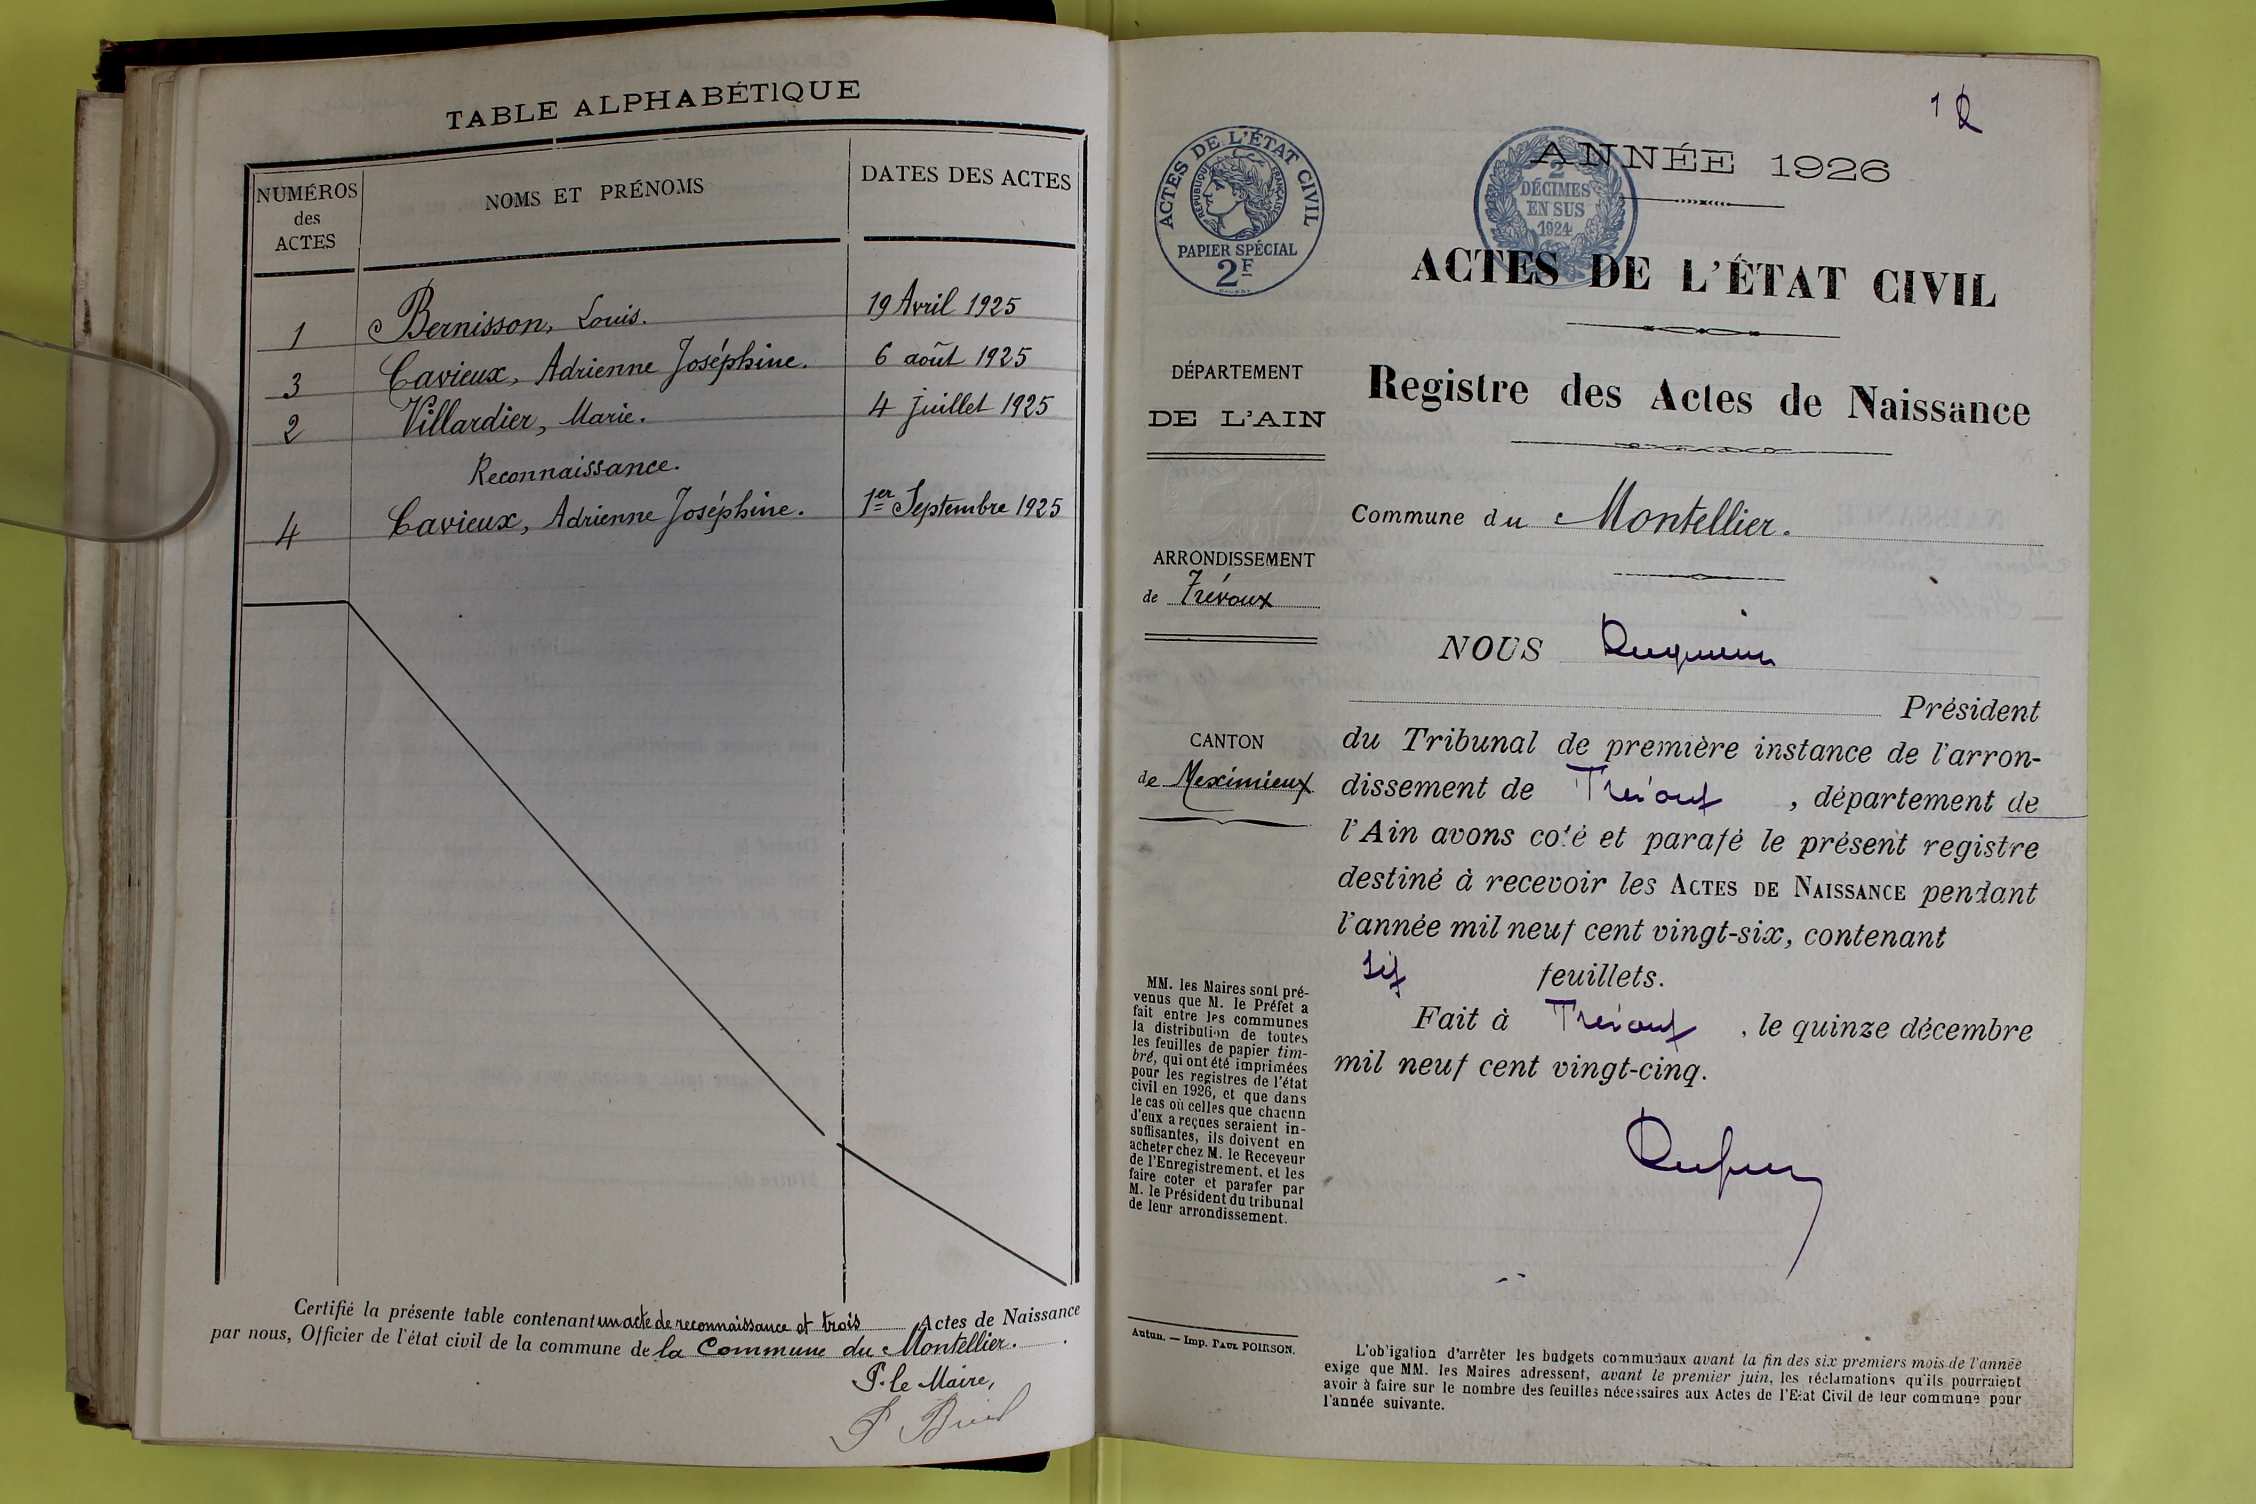 TABLE ALPHABÉTIQUE
NUMÉROS
des
ACTES
NOMS ET PRÉNOMS
DATES DES ACTES
1 Bernisson, Louis. 19 Avril 1925
3 Cavieux, Adrienne Joséphine. 6 août 1925
2 Villardier, Marie. 4 Juillet 1925
Reconnaissance.
4 Cavieux, Adrienne Joséphine. 1er Septembre 1925
Certifié la présente table contenant un acte de reconnaissance et trois Actes de Naissance
par nous, Officier de l'état civil de la commune de la Commune du Montellier.
P. le Maire,
1
ACTES DE L'ÉTAT CIVIL
RÉPUBLIQUE FRANÇAISE
PAPIER SPÉCIAL
2F
2
DÉCIMES
EN SUS
1924
ANNÉE 1926
ACTES DE L'ÉTAT CIVIL
Registre des Actes de Naissance
DÉPARTEMENT
DE L'AIN
ARRONDISSEMENT
de Trévoux
CANTON
de Meximieux
MM. les Maires sont pré-
venus que M. le Préfet a
fait entre les communes
la distribution de toutes
les feuilles de papier tim-
bré, qui ont été imprimées
pour les registres de l'état
civil en 1926, et que dans
le cas où celles que chacun
d'eux a reçues seraient in-
suffisantes, ils doivent en
acheter chez M. le Receveur
de l'Enregistrement, et les
faire coter et parafer par
M. le Président du tribunal
de leur arrondissement.
Autun. — Imp. PAUL POIRSON.
Commune du Montellier.
NOUS
Président
du Tribunal de première instance de l'arron-
dissement de Trévoux, département de
l'Ain avons coté et parafé le présent registre
destiné à recevoir les ACTES DE NAISSANCE pendant
l'année mil neuf cent vingt-six, contenant
six feuillets.
Fait à Trévoux, le quinze décembre
mil neuf cent vingt-cinq.
L'obligation d'arrêter les budgets communaux avant la fin des six premiers mois de l'année
exige que MM. les Maires adressent, avant le premier juin, les réclamations qu'ils pourraient
avoir à faire sur le nombre des feuilles nécessaires aux Actes de l'Etat Civil de leur commune pour
l'année suivante.